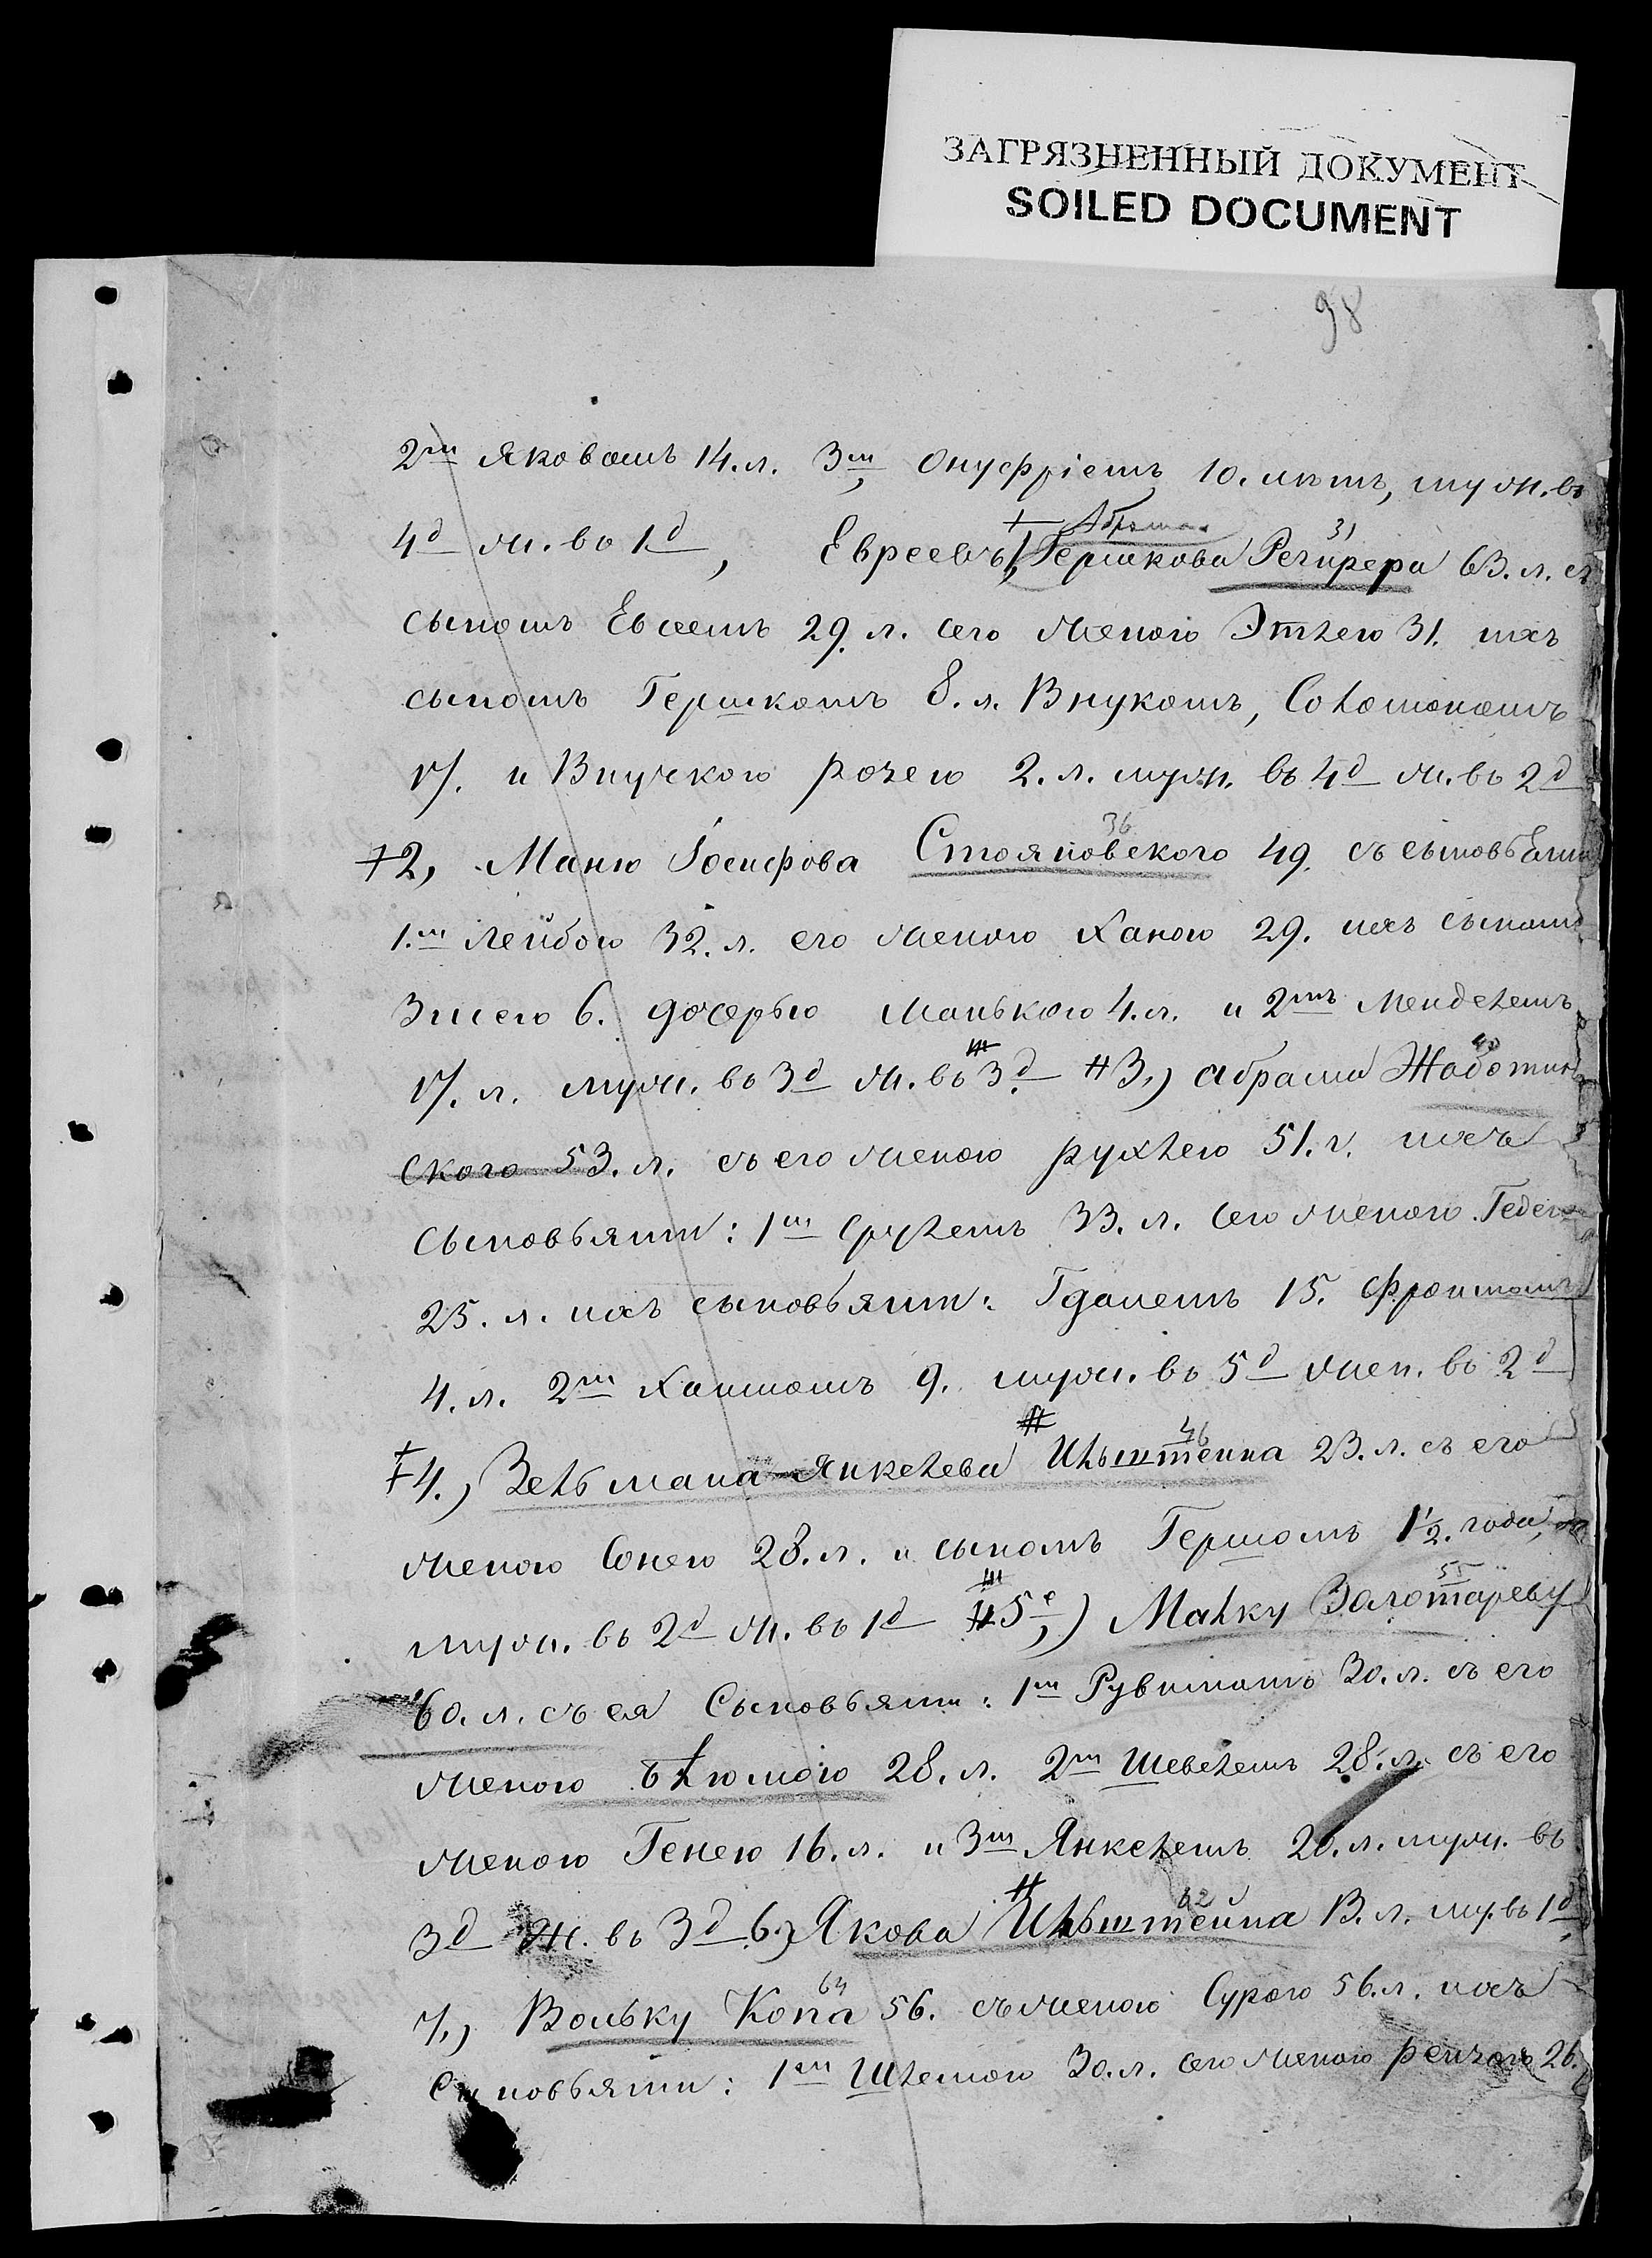 ЗАГРЯЗНЕННЫЙ ДОКУМЕНТ
SOILED DOCUMENT
98
2м Яковомъ 14.л. 3м, Онуфріемъ 10. лѣтъ, муж. въ
Абрама 31
4д ж. во 1д, Евреевъ, Гершкова 63. л. съ
сыномъ Евсеемъ 29. л. его женою Этлею 31. ихъ
сыномъ Гершкомъ 8. л. Внукомъ, Соломономъ
17. и Внучкою 2. л. муж. въ 4д ж. въ 2д
36
2, Маню Іосифова Стояновского 49. съ сыновьями
1.м Лейбою 32. л. его женою Ханою 29. ихъ сыномъ
Зисею 6. дочерью Манькою 4. л. и 2мъ Менделемъ
17. л. муж. во 3д ж. въ 3д 3,) Абрама Жаботин
ского 53. л. съ его женою Рухлею 51. г. ихъ
сыновьями: 1м Срулемъ 33. л. его женою
25. л. ихъ сыновьями: Гдалемъ 15. Фроимомъ
4. л. 2м Хаимомъ 9. муж. въ 5д жен. въ 2д
46
4.) Зельмана Янкелева Ильштейна 23. л. съ его
женою Сонею 28. л. и сыномъ Гершомъ 1½. года,
55
муж. въ 2д ж. въ 1д 5е,) Малку Золотареву
60. л. съ ея Сыновьями: 1м Рувиномъ 30. л. съ его
женою Блюмою 28. л. 2м Шевелемъ 28. л. съ его
женою Генею 16. л. и 3м Янкелемъ 20. л. муж. въ
62
3д Ж. въ 3д 6.) Якова Ильштейна 13. л. му. въ 1д
64
7,) Вольку Копа 56. съ женою Сурою 56. л. ихъ
Сыновьями: 1м Шлемою 30. л. его женою 26.